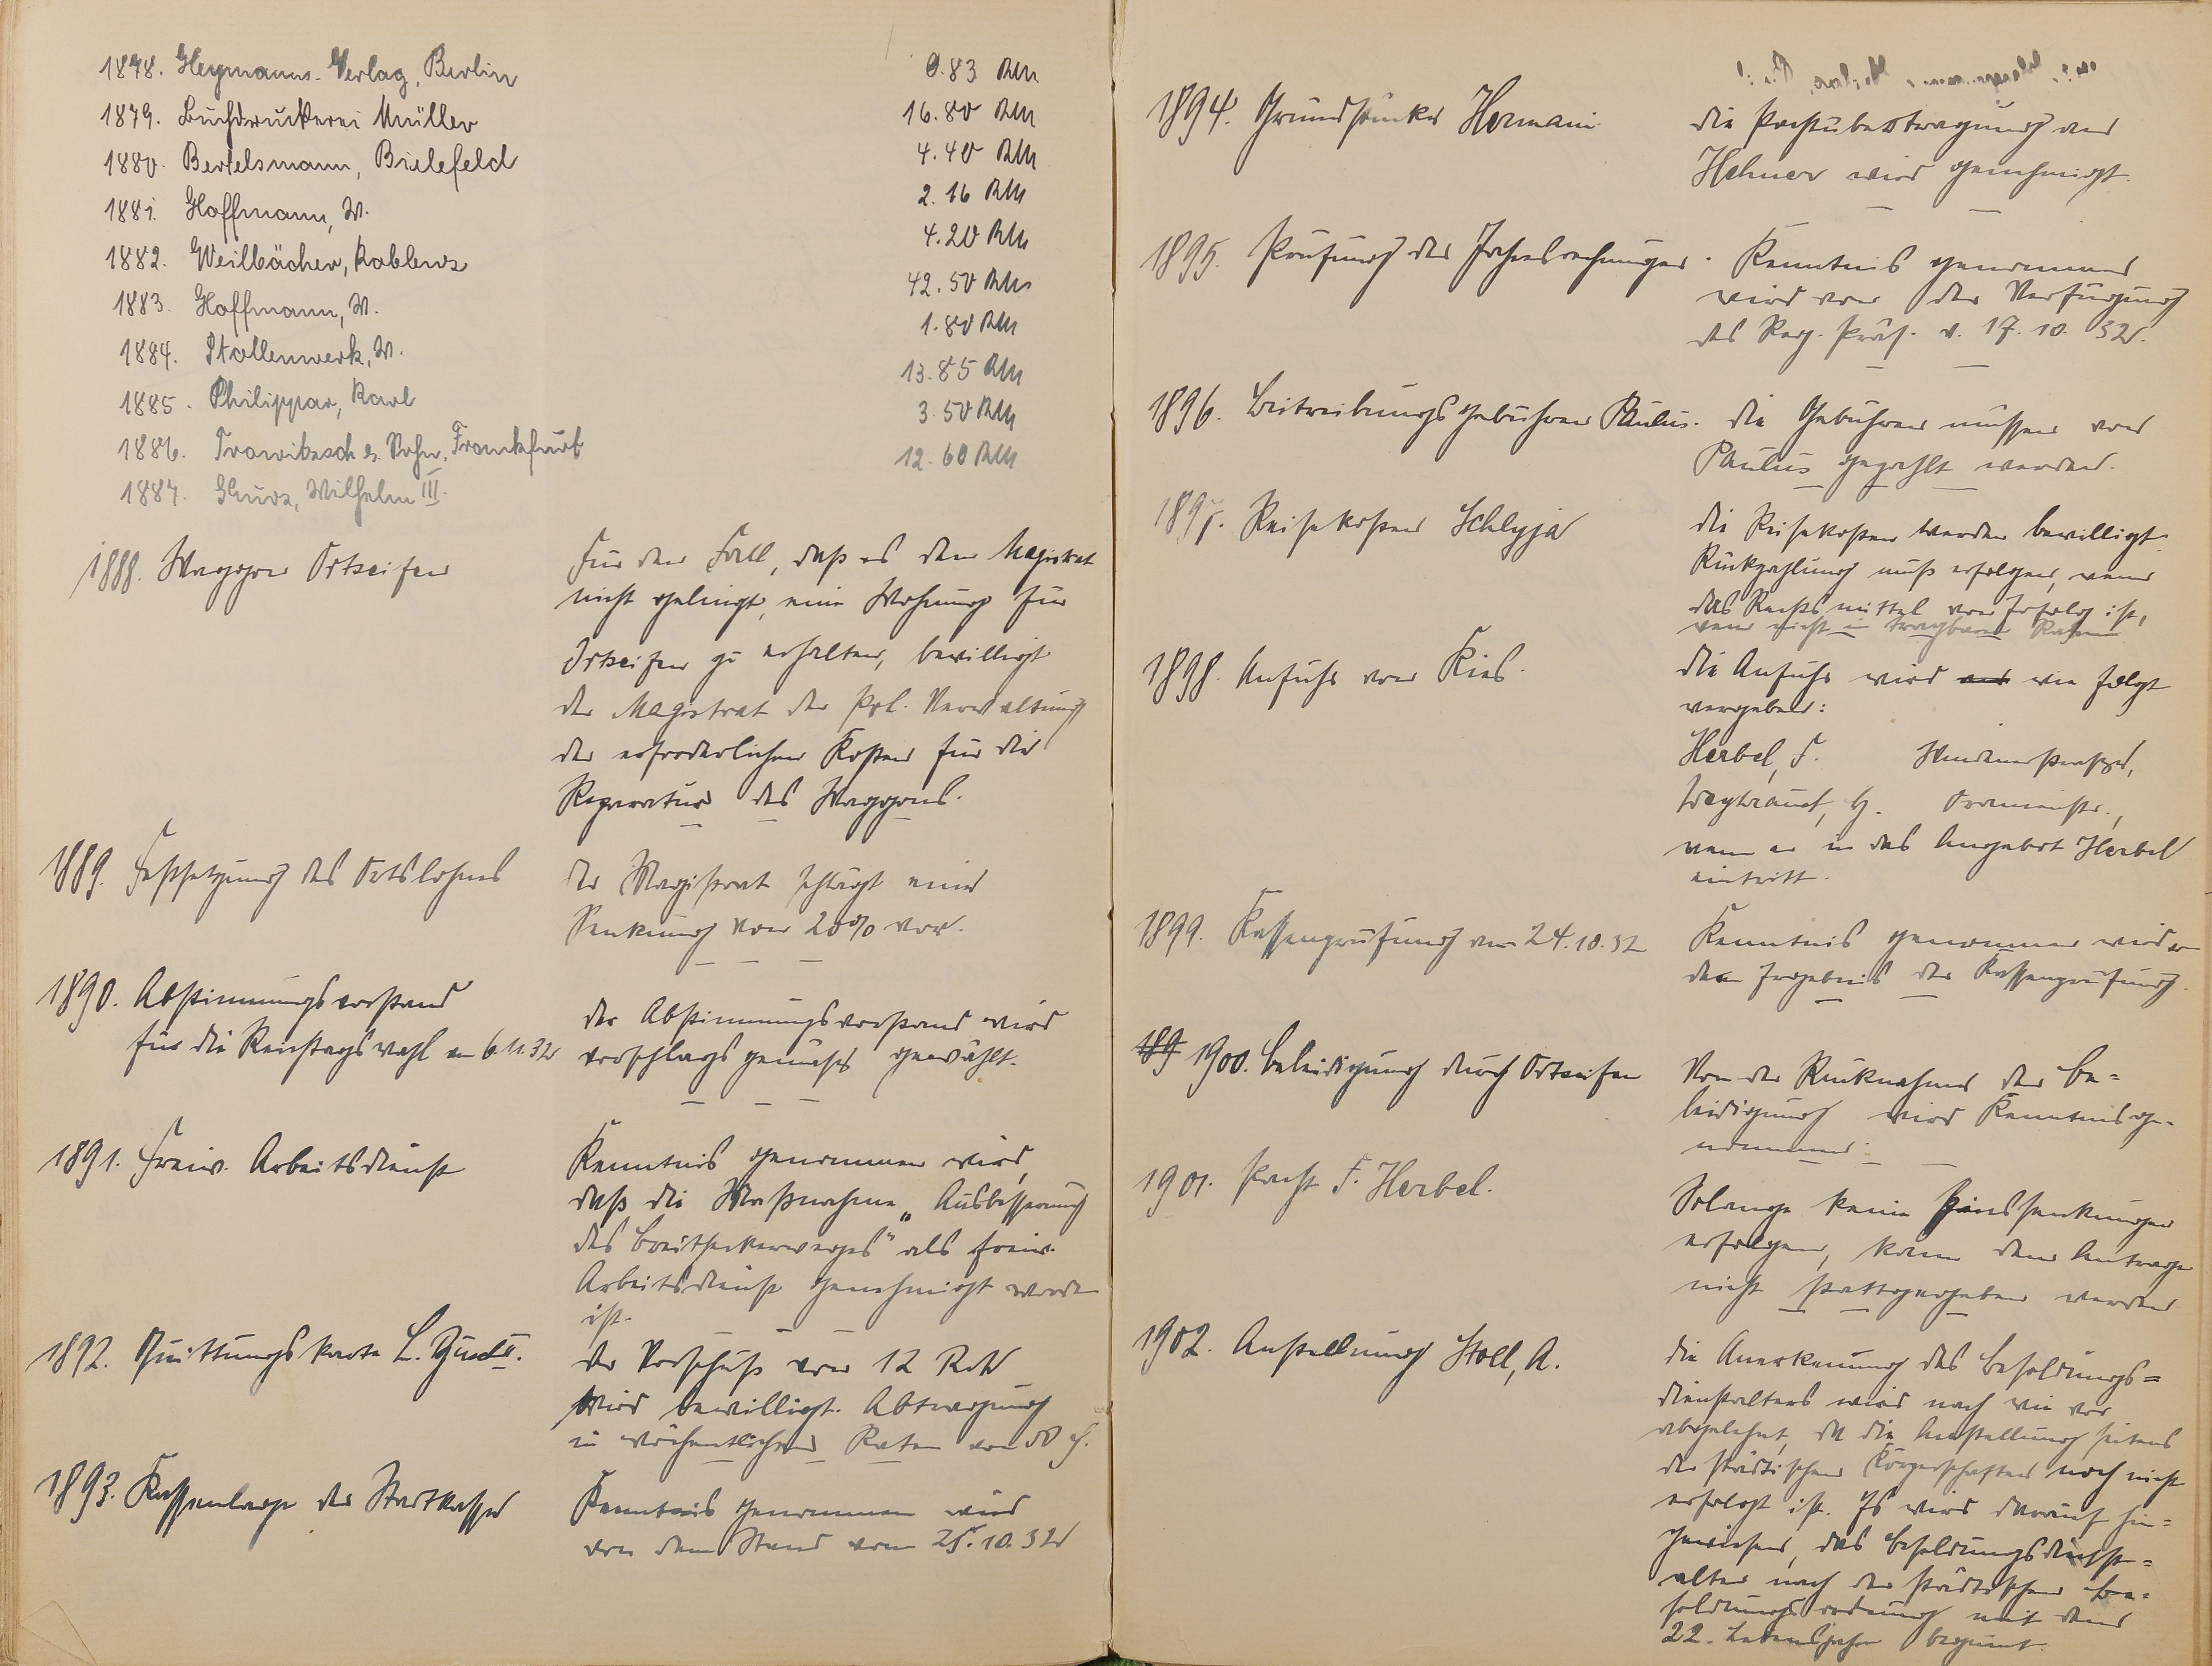 1878. Heymanns-Verlag, Berlin 0.83 RM
1879. Buchdruckerei Müller 16.80 RM
1880. Bertelsmann, Bielefeld 4.40 RM
1881. Hoffmann, W. 2.16 RM
1882. Weilbächer, Koblenz 4.20 RM
1883. Hoffmann, W. 42.50 RM
1884. Stollenwerk, W. 1.80 RM
1885. Philippar, Karl 13.85 RM
1886. Trowitzsch & Sohn, Frankfurt 3.50 RM
1887. Wilhelm III. 12.60 RM
1888. Waggon Ortseifen
Für den Fall, daß es dem Magistrat
nicht gelingt, eine Wohnung für
Ortseifen zu erhalten, bewilligt
der Magistrat der Pol. Verwaltung
die erforderlichen Kosten für die
Reparatur des Waggons.
1889. Festsetzung des Ortslohnes
Der Magistrat schlägt eine
Senkung von 20% vor.
1890. Abstimmungsvorstand
für die Reichstagswahl am 6.11.32
Der Abstimmungsvorstand wird
vorschlagsgemäß gewählt.
1891. Freiw. Arbeitsdienst
Kenntnis genommen wird,
daß die Maßnahme „Ausbesserung
des Breitheckerweges" als freiw.
Arbeitsdienst genehmigt worden
ist.
1892. Quittungskarte L. II.
Der Vorschuß von 12 RM
wird bewilligt. Abtragung
in wöchentlichen Raten von 50 ₰.
1893. Kassenlage der Stadtkasse
Kenntnis genommen wird
von dem Stand vom 25.10.32
1894. Grundstücke Hermani
Die Pachtübertragung an
Hehner wird genehmigt.
1895. Prüfung der Jahresrechnungen.
Kenntnis genommen
wird von der Verfügung
des Reg. Präs. v. 17.10.32.
1896. Beitreibungsgebühren Paulus.
Die Gebühren müssen von
Paulus gezahlt werden.
1897. Reisekosten Schlyja
Die Reisekosten werden bewilligt.
Rückzahlung muß erfolgen, wenn
das Rechtsmittel von Erfolg ist,
wenn nicht in tragbaren Raten
1898. Anfuhr von Kies.
Die Anfuhr wird wie folgt
vergeben:
Herbel, F.
Weytrauch, H.
wenn er in das Angebot Herbel
eintritt.
1899. Kassenprüfung am 24.10.32
Kenntnis genommen wird von
dem Ergebnis der Kassenprüfung.
189 1900. Beleidigung durch Ortseifen
Von der Rücknahme der Be=
leidigung wird Kenntnis ge-
nommen.
1901. Pacht F. Herbel.
Solange keine Zinssenkungen
erfolgen, kann dem Antrage
nicht stattgegeben werden
1902. Anstellung Stoll, A.
Die Anerkennung des Besoldungs=
dienstalters wird nach wie vor
abgelehnt, da die Anstellung seitens
der städtischen Körperschaften noch nicht
erfolgt ist. Es wird darauf hin=
gewiesen, das Besoldungsdienst=
alter nach der städtischen Be=
soldungsordnung mit dem
22. Lebensjahre beginnt.